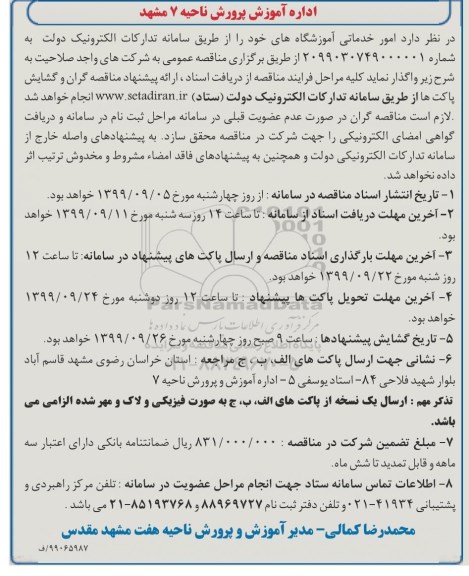 اداره آموزش پرورش ناحیه ۷ مشهد
در نظر دارد امور خدماتی آموزشگاه های خود را از طریق سامانه تدارکات الکترونیک دولت به
شماره ۲۰۹۹۰۳۰۷۴۹۰۰۰۰۰۱ از طریق برگزاری مناقصه عمومی به شرکت های واجد صلاحیت به
شرح زیر واگذار نماید کلیه مراحل فرایند مناقصه از دریافت اسناد، ارائه پیشنهاد مناقصه گران و گشایش
پاکت ها از طریق سامانه تدارکات الکترونیک دولت (ستاد) www.setadiran.ir انجام خواهد شد
.لازم است مناقصه گران در صورت عدم عضویت قبلی در سامانه مراحل ثبت نام در سامانه و دریافت
گواهی امضای الکترونیکی را جهت شرکت در مناقصه محقق سازد. به پیشنهادهای واصله خارج از
سامانه تدارکات الکترونیکی دولت و همچنین به پیشنهادهای فاقد امضاء مشروط و مخدوش ترتیب اثر
داده نخواهد شد.
۱- تاریخ انتشار اسناد مناقصه در سامانه : از روز چهارشنبه مورخ ۱۳۹۹/۰۹/۰۵ خواهد بود.
۲- آخرین مهلت دریافت اسناد از سامانه : تا ساعت ۱۴ روز سه شنبه مورخ ۱۳۹۹/۰۹/۱۱ خواهد
بود.
۳- آخرین مهلت بارگذاری اسناد مناقصه و ارسال پاکت های پیشنهاد در سامانه: تا ساعت ۱۲
روز شنبه مورخ ۱۳۹۹/۰۹/۲۲ خواهد بود.
۴- آخرین مهلت تحویل پاکت ها پیشنهاد : تا ساعت ۱۲ روز دوشنبه مورخ ۱۳۹۹/۰۹/۲۴
خواهد بود.
۵- تاریخ گشایش پیشنهادها : ساعت ۹ صبح روز چهارشنبه مورخ ۱۳۹۹/۰۹/۲۶ خواهد بود.
۶- نشانی جهت ارسال پاکت های الف، ب، ج مراجعه : استان خراسان رضوی مشهد قاسم آباد
بلوار شهید فلاحی ۸۴- استاد یوسفی ۵ - اداره آموزش و پرورش ناحیه ۷
تذکر مهم : ارسال یک نسخه از پاکت های الف، ب، ج به صورت فیزیکی و لاک و مهر شده الزامی می
باشد.
۷- مبلغ تضمین شرکت در مناقصه : ۸۳۱/۰۰۰/۰۰۰ ریال ضمانتنامه بانکی دارای اعتبار سه
ماهه و قابل تمدید تا شش ماه.
۸- اطلاعات تماس سامانه ستاد جهت انجام مراحل عضویت در سامانه : تلفن مرکز راهبردی و
پشتیبانی ۴۱۹۳۴-۰۲۱ و تلفن دفتر ثبت نام ۸۸۹۶۹۷۲۷ و ۸۵۱۹۳۷۶۸-۲۱ می باشد .
محمدرضا کمالی- مدیر آموزش و پرورش ناحیه هفت مشهد مقدس
۹۹۰۶۵۹۸۷/ف
ParsNamadData